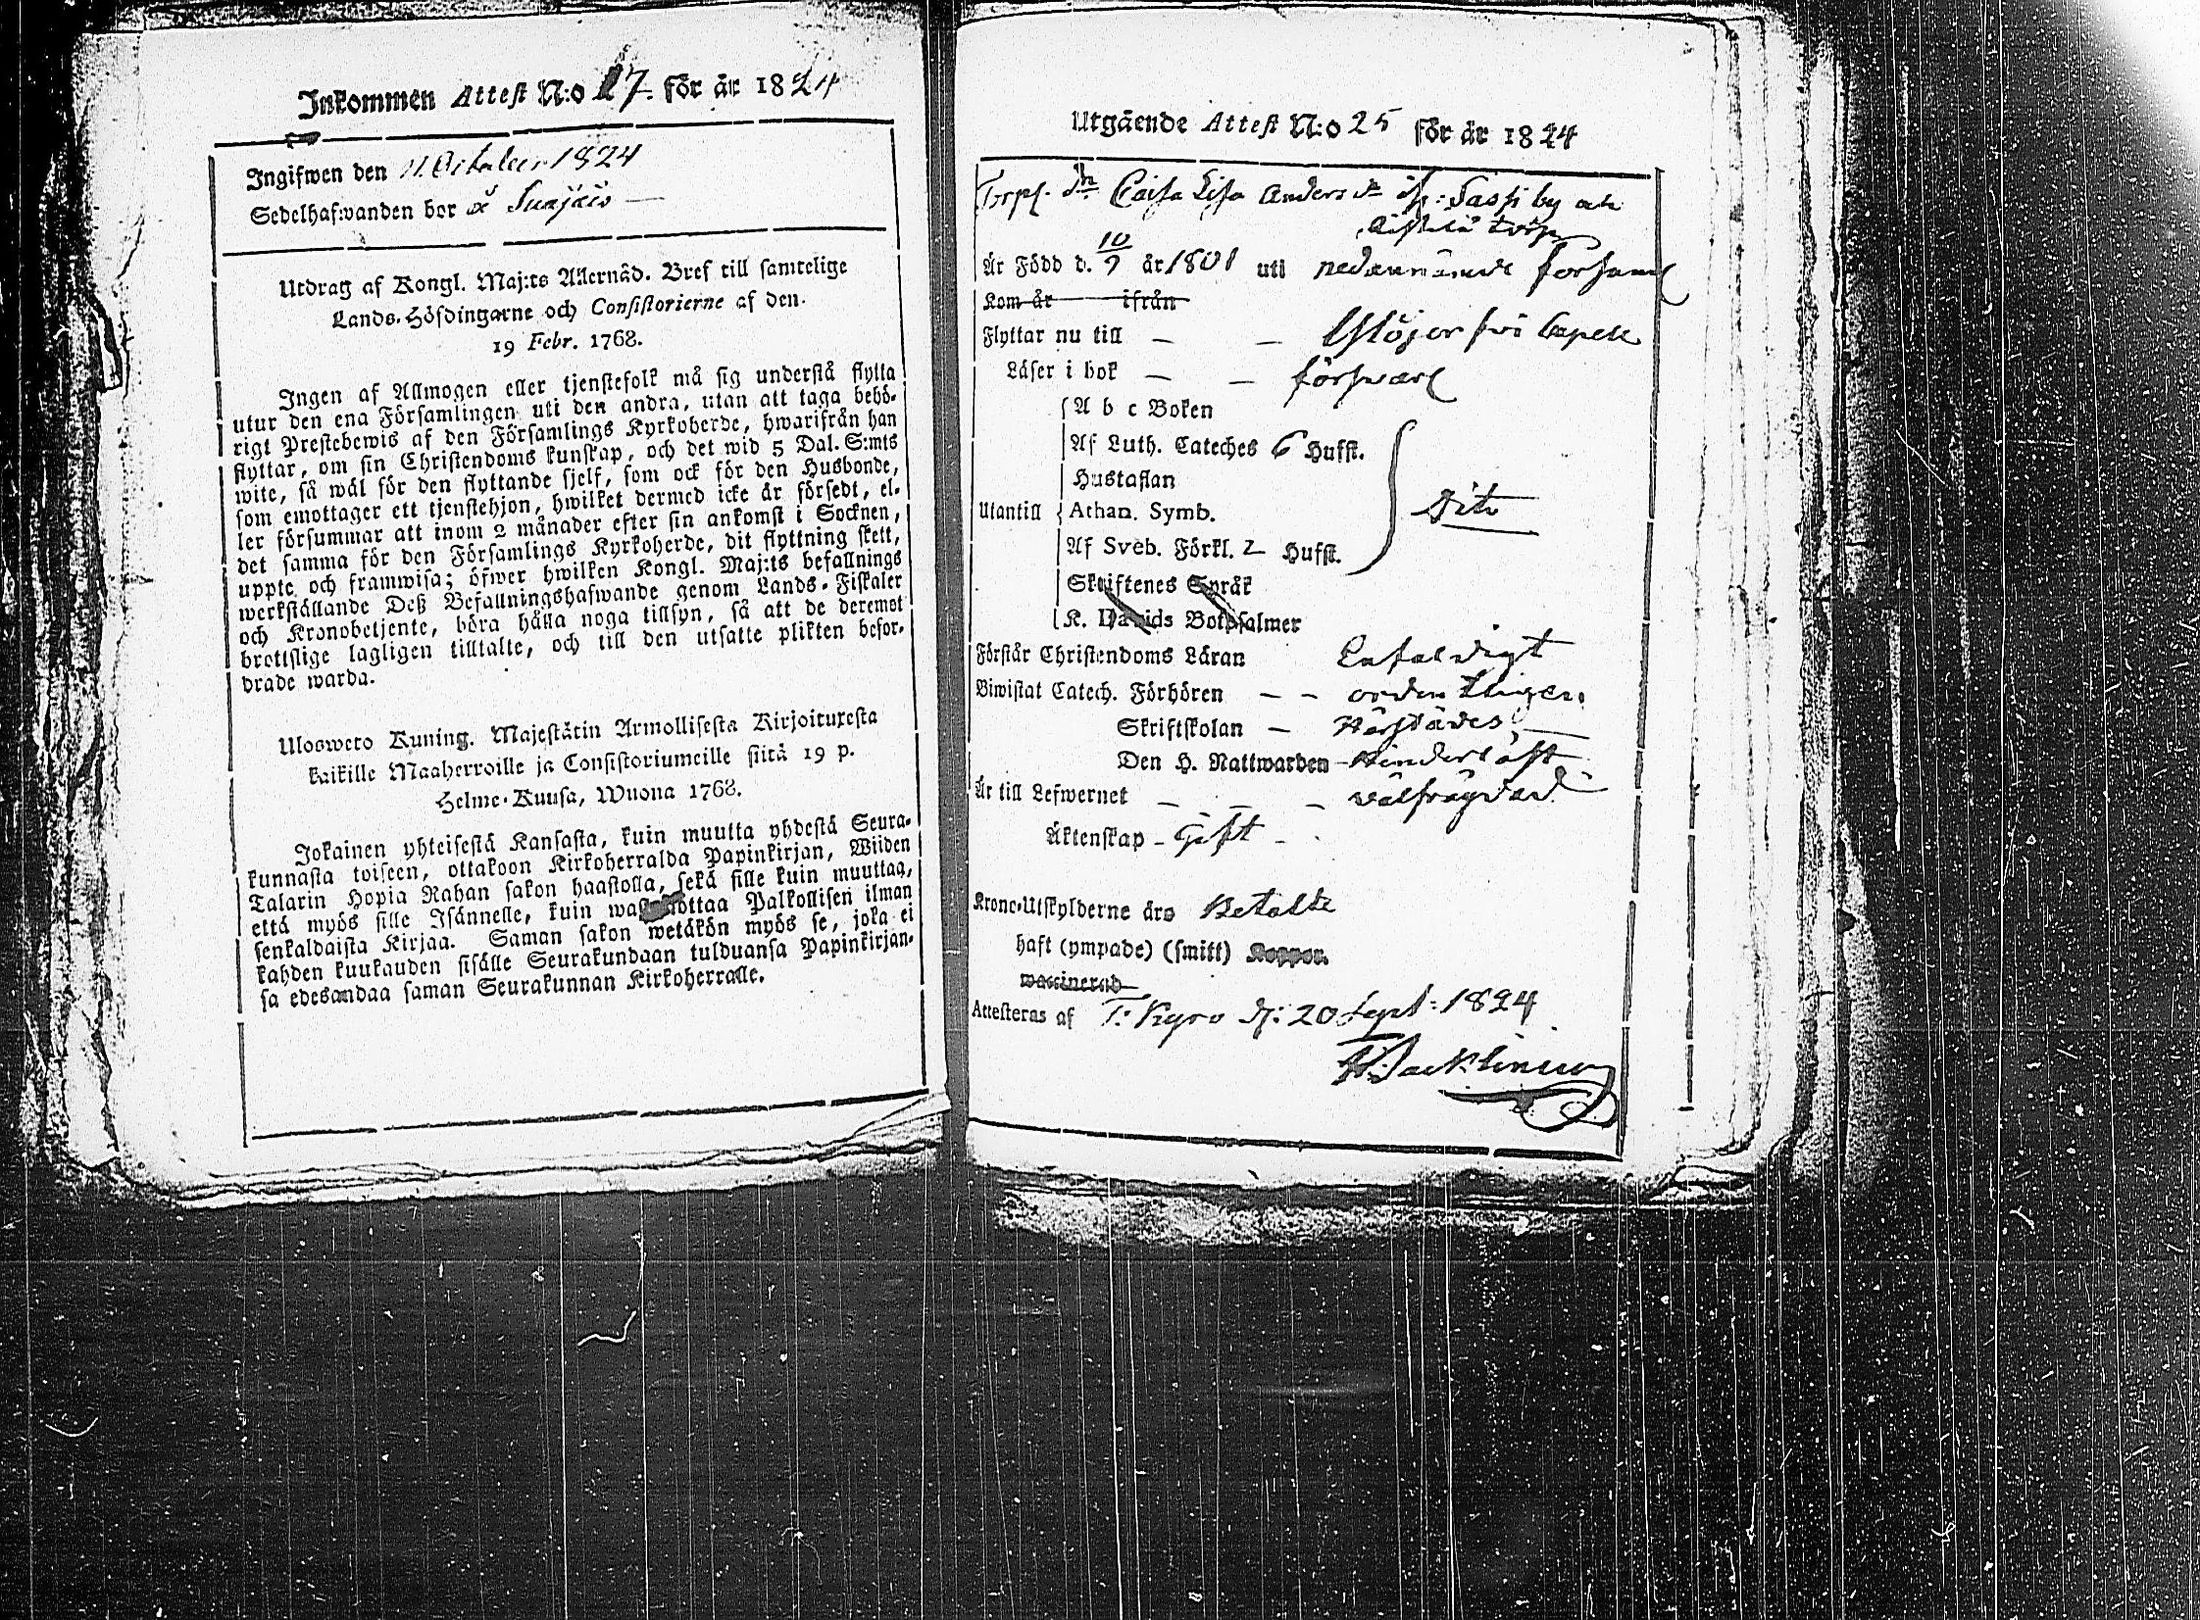 Inkommen Attest N:o 17. för år 1824
Ingifwen den 11 October 1824
Sedelhafwanden bor å
Utdrag af Kongl. Maj:ts Allernåd. Bref till samtelige
Lands-Höfdingarne och Consistorierne af den
19 Febr. 1768.
Ingen af Allmogen eller tjenstefolk må sig understå flytta
utur den ena Församlingen uti den andra, utan att taga behö-
rigt Prestebewis af den Församlings Kyrkoherde, hwarifrån han
flyttar, om sin Christendoms kunskap, och det wid 5 Dal. S:mts
wite, så wäl för den flyttande sjelf, som ock för den Husbonde,
som emottager ett tjenstehjon, hwilket dermed icke är försedt, el-
ler försummar att inom 2 månader efter sin ankomst i Socknen,
det samma för den Församlings Kyrkoherde, dit flyttning skett,
uppte och framwisa; öfwer hwilken Kongl. Maj:ts befallnings
werkställande Deß Befallningshafwande genom Lands-Fiskaler
och Kronobetjente, böra hålla noga tillsyn, så att de deremot
brottslige lagligen tilltalte, och till den utsatte plikten befor-
drade warda.
Ulosweto Kuning. Majestätin Armollisesta Kirjoituxesta
kaikille Maaherroille ja Consistoriumeille siitä 19 p.
Helme-Kuusa, Wuona 1768.
Jokainen yhteisestä Kansasta, kuin muutta yhdestä Seura-
kunnasta toiseen, ottakoon Kirkoherralda Papinkirjan, Wiiden
Talarin Hopia Rahan sakon haastolla, sekä sille kuin muuttaa,
että myös sille Isännelle, kuin Palkollisen ilman
senkaldaista Kirjaa. Saman sakon wetäkön myös se, joka ei
kahden kuukauden sisälle Seurakundaan tulduansa Papinkirjan-
sa edesandaa saman Seurakunnan Kirkoherralle.
Utgående Attest N:o 25 för år 1824
Caisa Lisa Anders Sassi by och
Är Född d. 10/9 år 1801 uti nedannämde
Kom år ifrån
Flyttar nu till — —
Läser i bok — — förswarl
A b c Boken
Af Luth. Cateches 6 Hufst.
Hustaflan
Utantill Athan. Symb. Dito
Af Sveb. Förkl. 2 Hufst.
Skriftenes Språk
K. Davids Botpsalmer
Förstår Christendoms Läran Enfaldigt
Biwistat Catech. Förhören — — ordentligen
Skriftskolan — Härstädes
Den H. Nattwarden —
Är till Lefwernet — — — välfrägdad
Äktenskap - Gift -
Krono-Utskylderne äro Betalte
haft (ympade) (smitt) Koppor.
waccinerad
Attesteras af T. Kyro d. 20 Sept: 1824